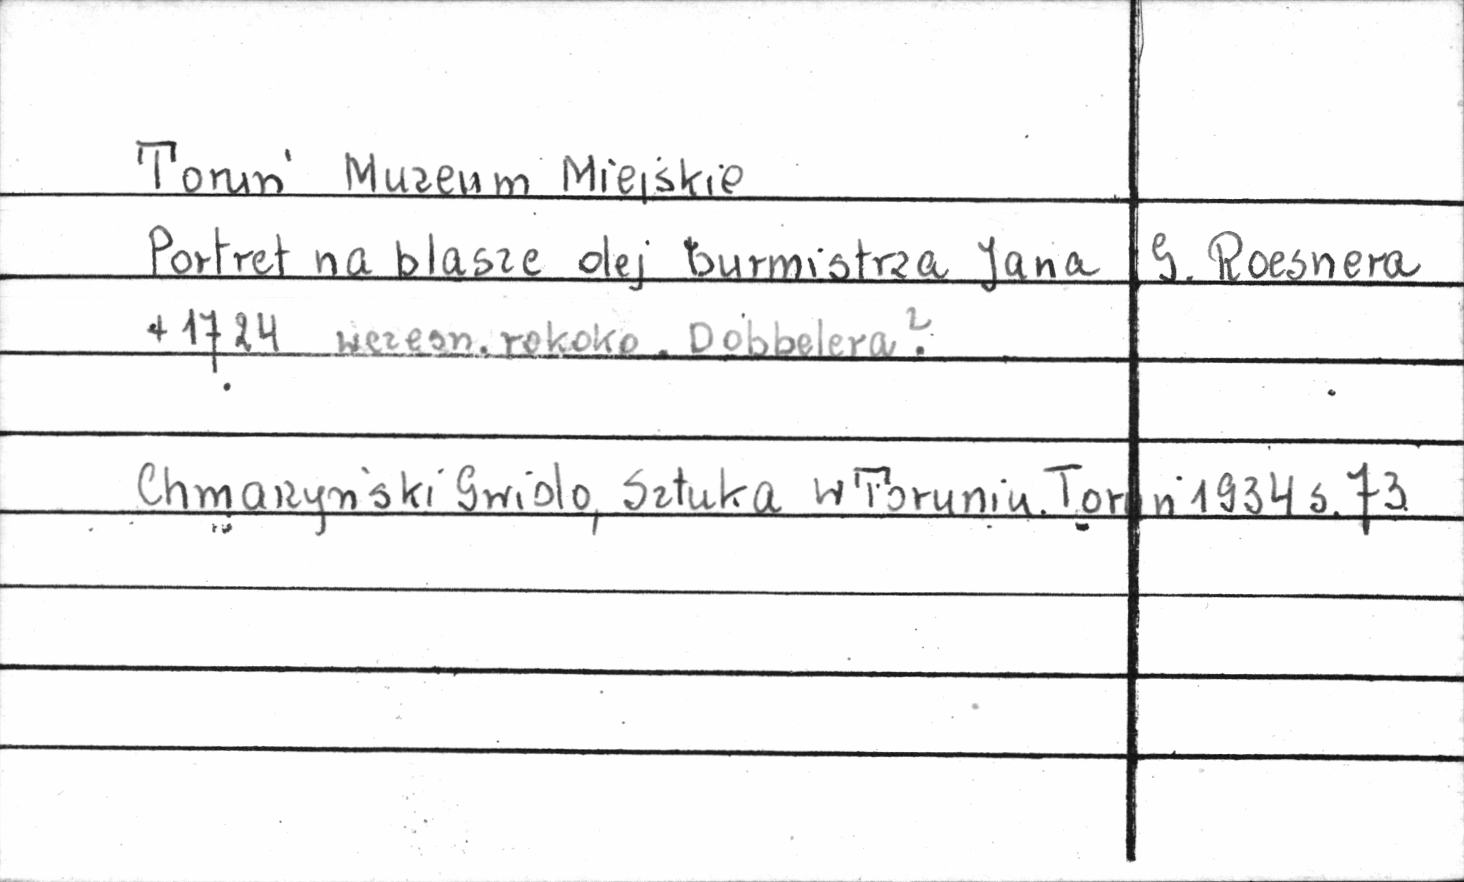 Toruń Muzeum Miejskie
Portret na blasze olej burmistrza Jana G. Roesnera
+ 1724 wczesn. rokoko. Dobbelera?
Chmarzyński Gwido, Sztuka w Toruniu. Toruń 1934 s. 73.